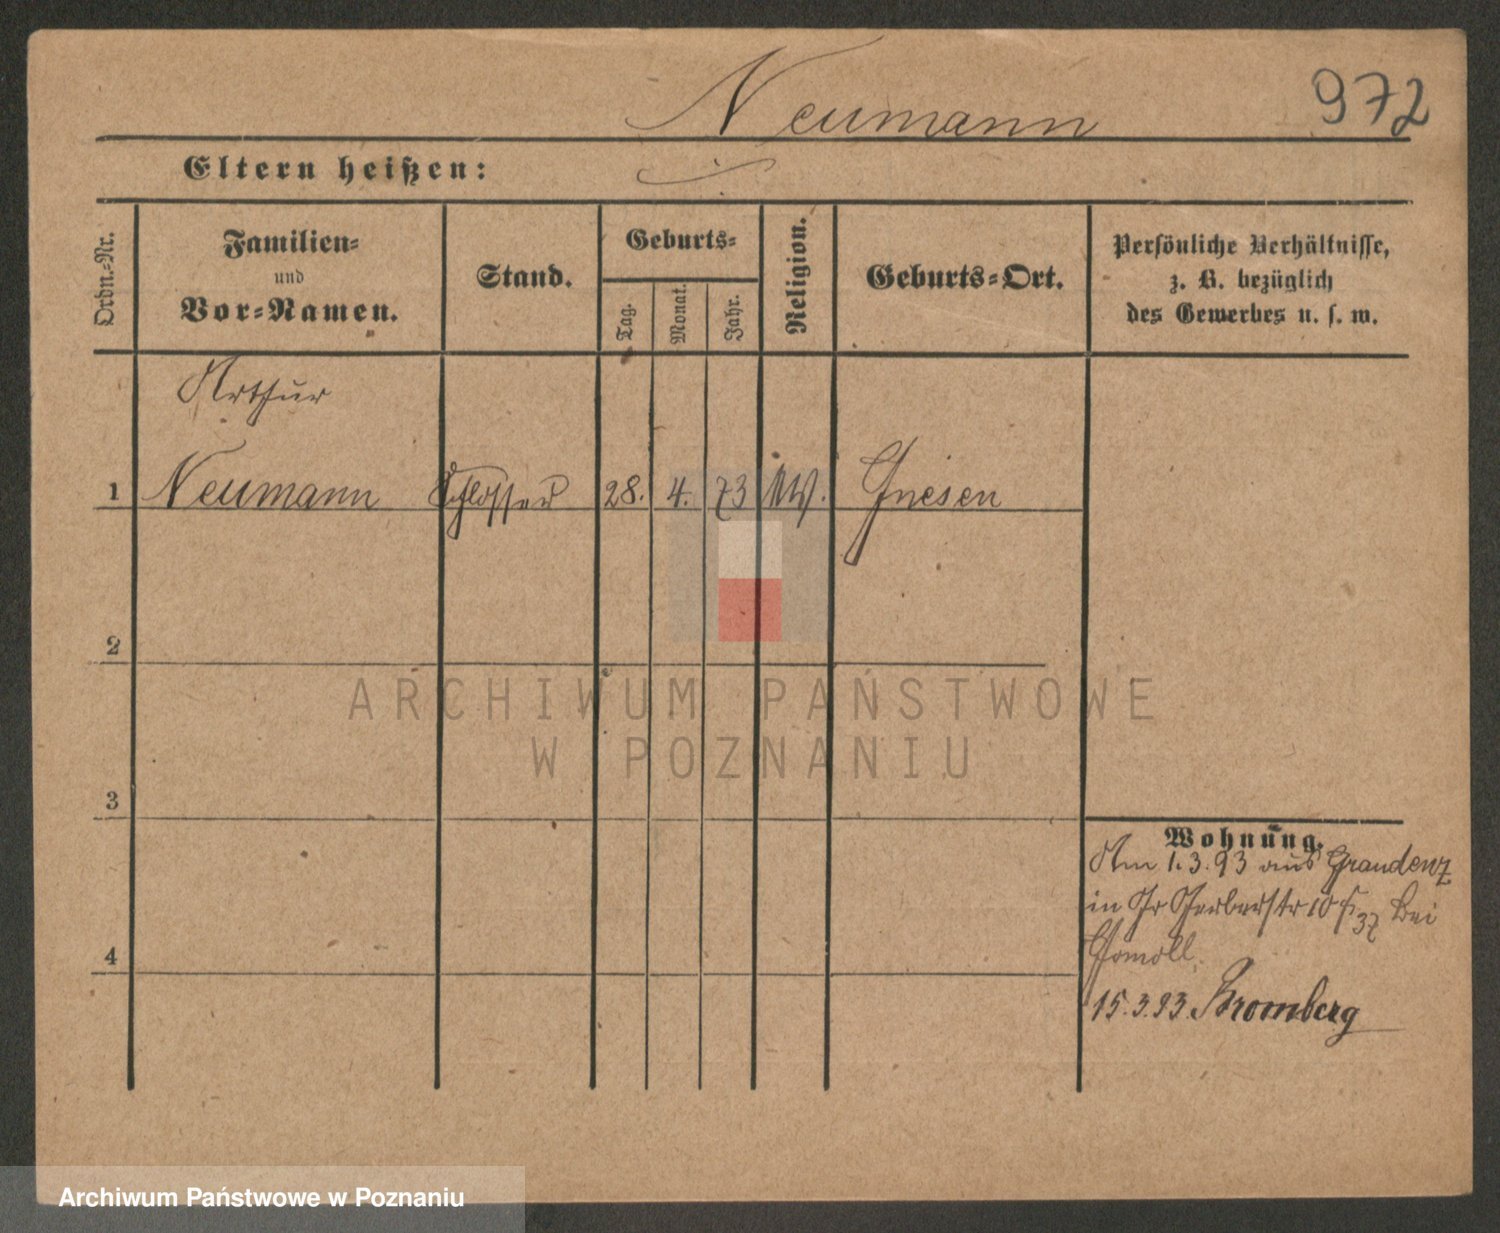 Neumann
972
Eltern heißen:
Ordn.-Nr.
Familien-
und
Vor-Namen.
Stand.
Geburts-
Tag.
Monat.
Jahr.
Religion.
Geburts-Ort.
Persönliche Verhältnisse,
z. B. bezüglich
des Gewerbes u. s. w.
Arthur
1 Neumann Schlosser 28. 4. 73 Gnesen
2
ARCHIWUM PAŃSTWOWE
W POZNANIU
3
4
Wohnung.
Am 1.3.93 aus Graudenz
in Gr Gerberstr 10 bei
15.3.93. Bromberg
Archiwum Państwowe w Poznaniu